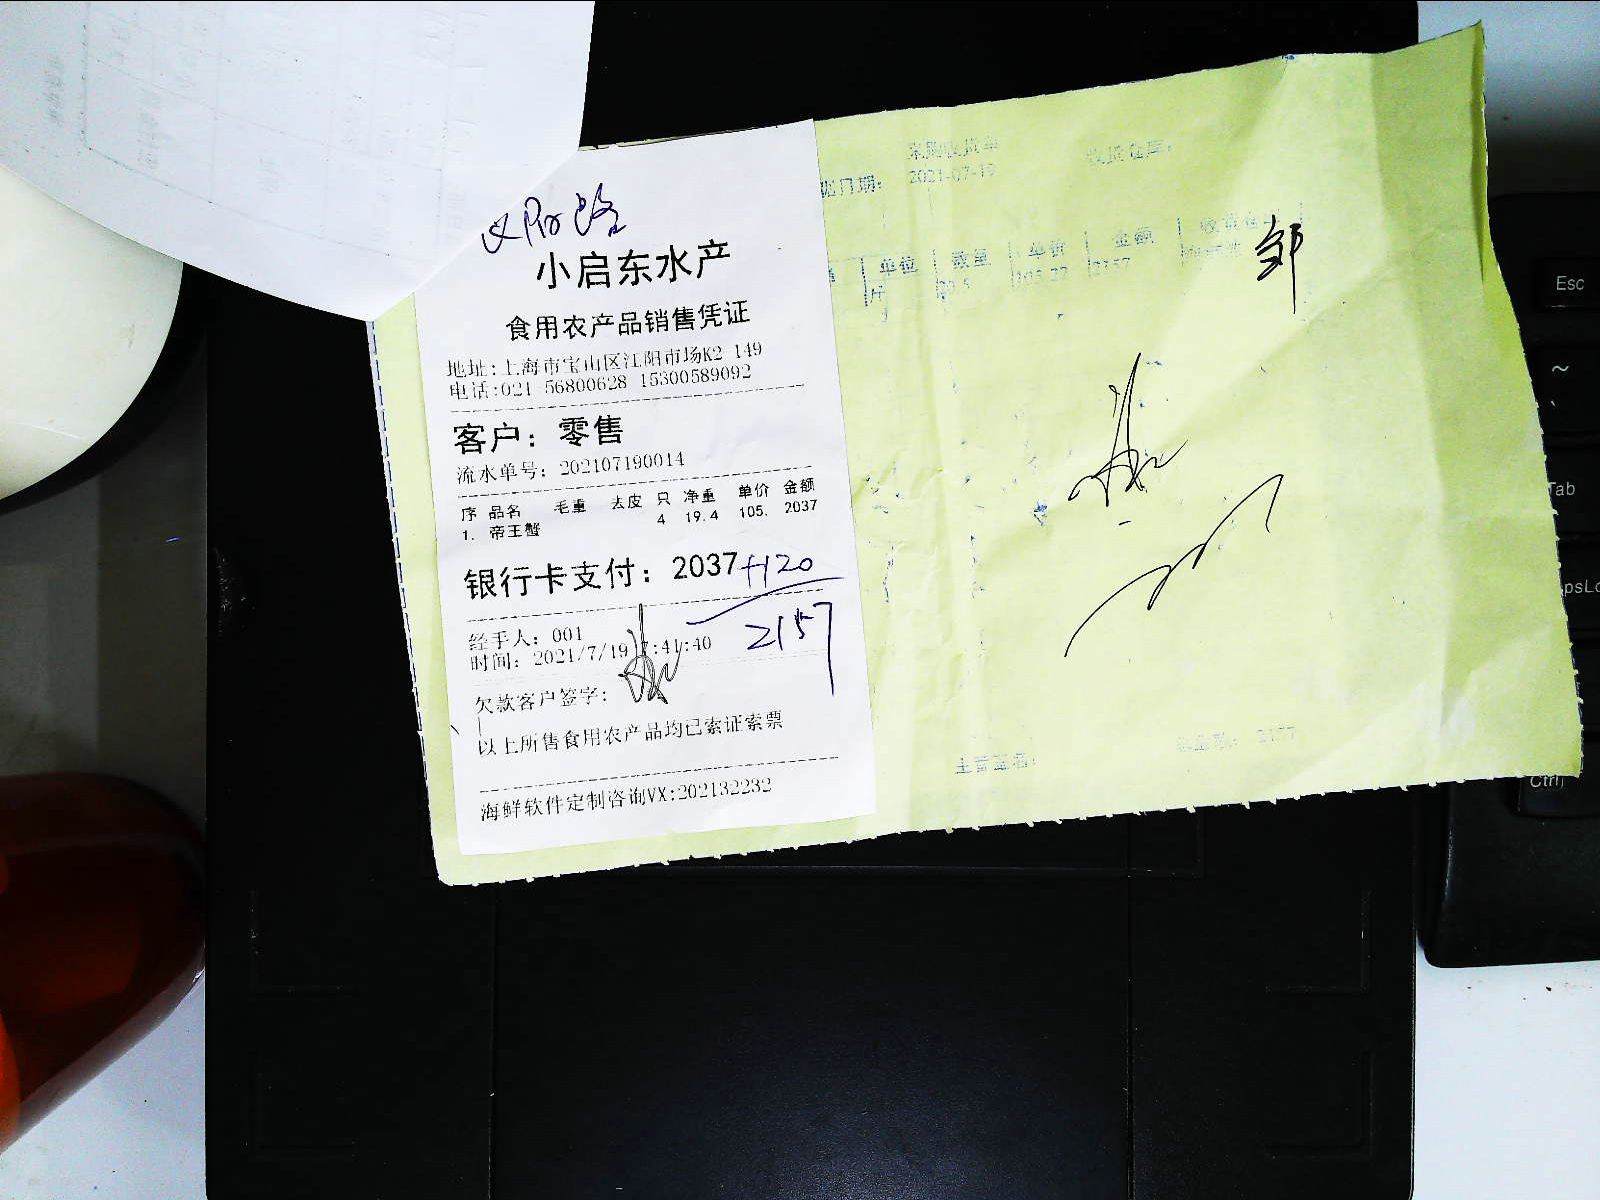 小启东水产
食用农产品销售凭证
地址:上海市宝山区江阳市场K2 149
电话:021 56800628 15300589092
客户：零售
流水单号：202107190014
序 品名 毛重 去皮 只 净重 单价 金额
1. 帝王蟹 4 19.4 105. 2037
银行卡支付：2037+120
2157
经手人：001
时间：2021/7/19 7:41:40
欠款客户签字：
以上所售食用农产品均已索证索票
海鲜软件定制咨询VX:202132232
采购收货单
日期： 2021-07-19 收货仓库：
单位 数量 单价 金额
斤 2157
邹
主管签名：
Esc
~
Tab
psLo
Ctrl